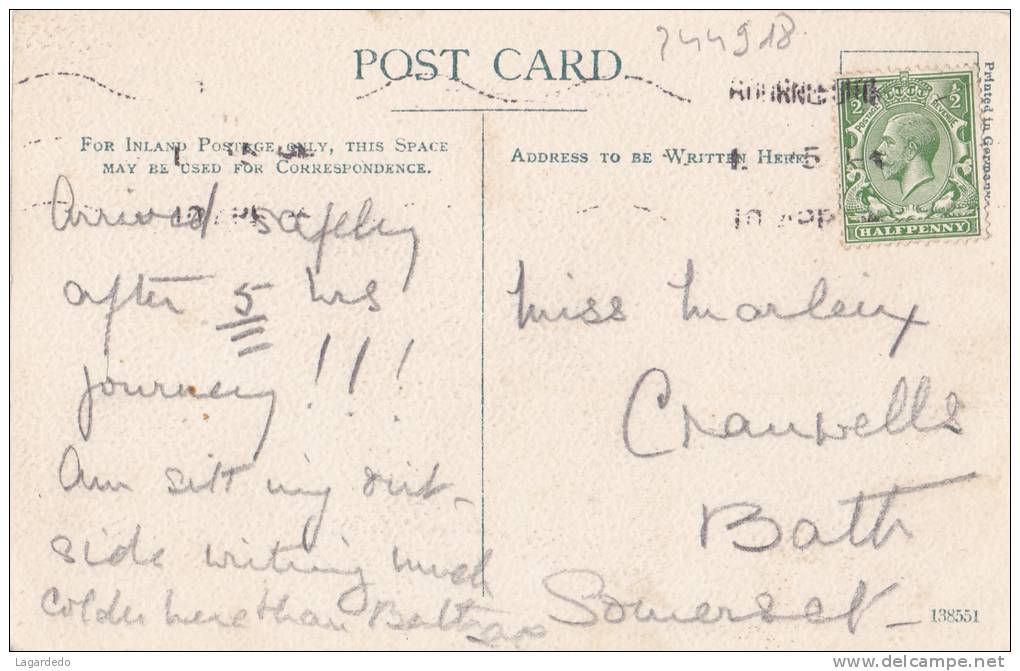 744918
POST CARD
FOR INLAND POSTAGE ONLY, THIS SPACE
MAY BE USED FOR CORRESPONDENCE.
ADDRESS TO BE WRITTEN HERE
HALFPENNY
POSTAGE REVENUE
½ ½
Printed in Germany
Arrived safely
after 5 hrs
journey!!!
Am sitting out-
side writing much
colder here than Bath
Miss
Cranwells
Bath
Somerset
138551
Lagardedo
delcampe.net